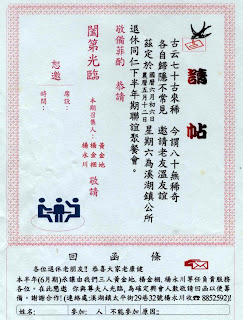 請帖
古云七十古來稀 今謂八十無稀奇
各自歸隱不常見 邀請老友溫友誼
茲定於 國曆六月初六日 農曆五月十二日 星期六為溪湖鎮公所
退休同仁下半年期聯誼聚餐會。
敬備菲酌 恭請
闔第光臨
本期召集人: 黃金地 楊金棚 楊永川 敬請
恕邀
席設:
時間:
回函條
各位退休老朋友!! 恭喜大家老康健
本半年(6月期)永讓由我們三人黃金地、楊金棚、楊永川等任負責服務
各位。在此懇邀 你與尊夫人光臨。為確定與會人數敬請回函以便籌
備。謝謝合作!(連絡處溪湖鎮太平街29巷32號楊永川收☎8852592)!
姓名: 參加: 人: 不能參加原因: